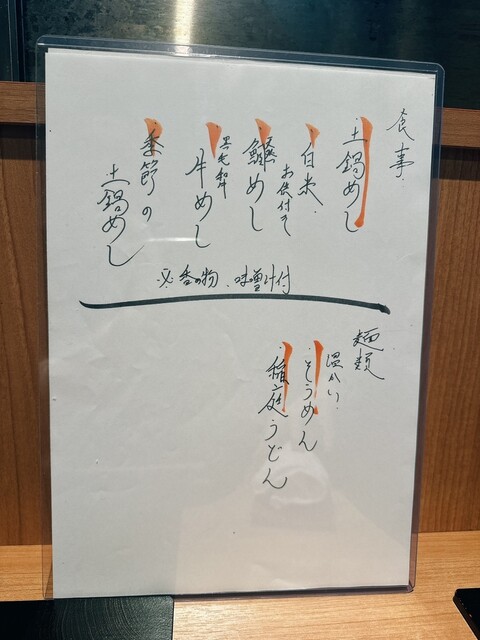 食事
土鍋めし
白米
お供付き
めし
黒毛和
牛めし
季節の
土鍋めし
※香の物、味噌汁付
麺類
温かい
そうめん
稲庭うどん